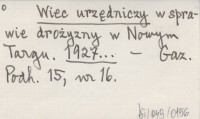 Wiec urzędniczy w spra-
wie drożyzny w Nowym
Targu. 1927... — Gaz.
Podh. 15, nr 16.